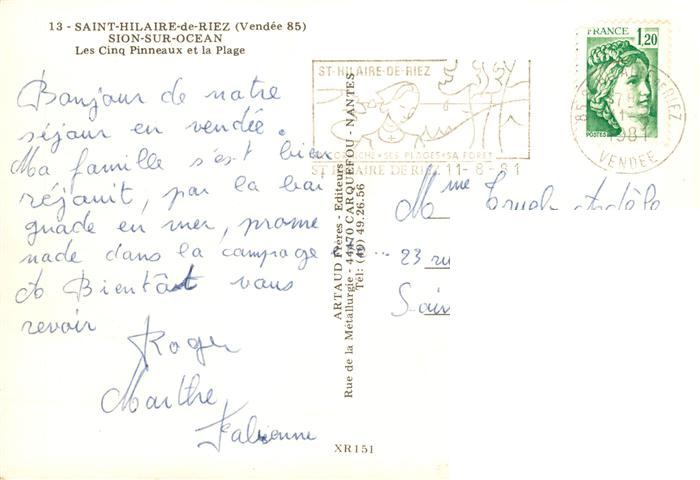 13 - SAINT-HILAIRE-de-RIEZ (Vendée 85)
SION-SUR-OCEAN
Les Cinq Pinneaux et la Plage
Bonjour de notre
séjour en vendée.
Ma famille s'est bien
réjouit, par la bai
gnade en mer, prome
nade dans la campagne ...
A Bientôt vous
revoir
Roger
Marthe,
Fabienne
ARTAUD Frères - Editeurs
Rue de la Métallurgie - 44470 CARQUEFOU - NANTES
Tél: (40) 49.26.56
XR151
ST-HILAIRE-DE-RIEZ
SES PLAGES • SA FORET
ST HILAIRE DE RIEZ 11-8-81
FRANCE
1,20
POSTES
1981
VENDEE
Mme
23 ru
Sain